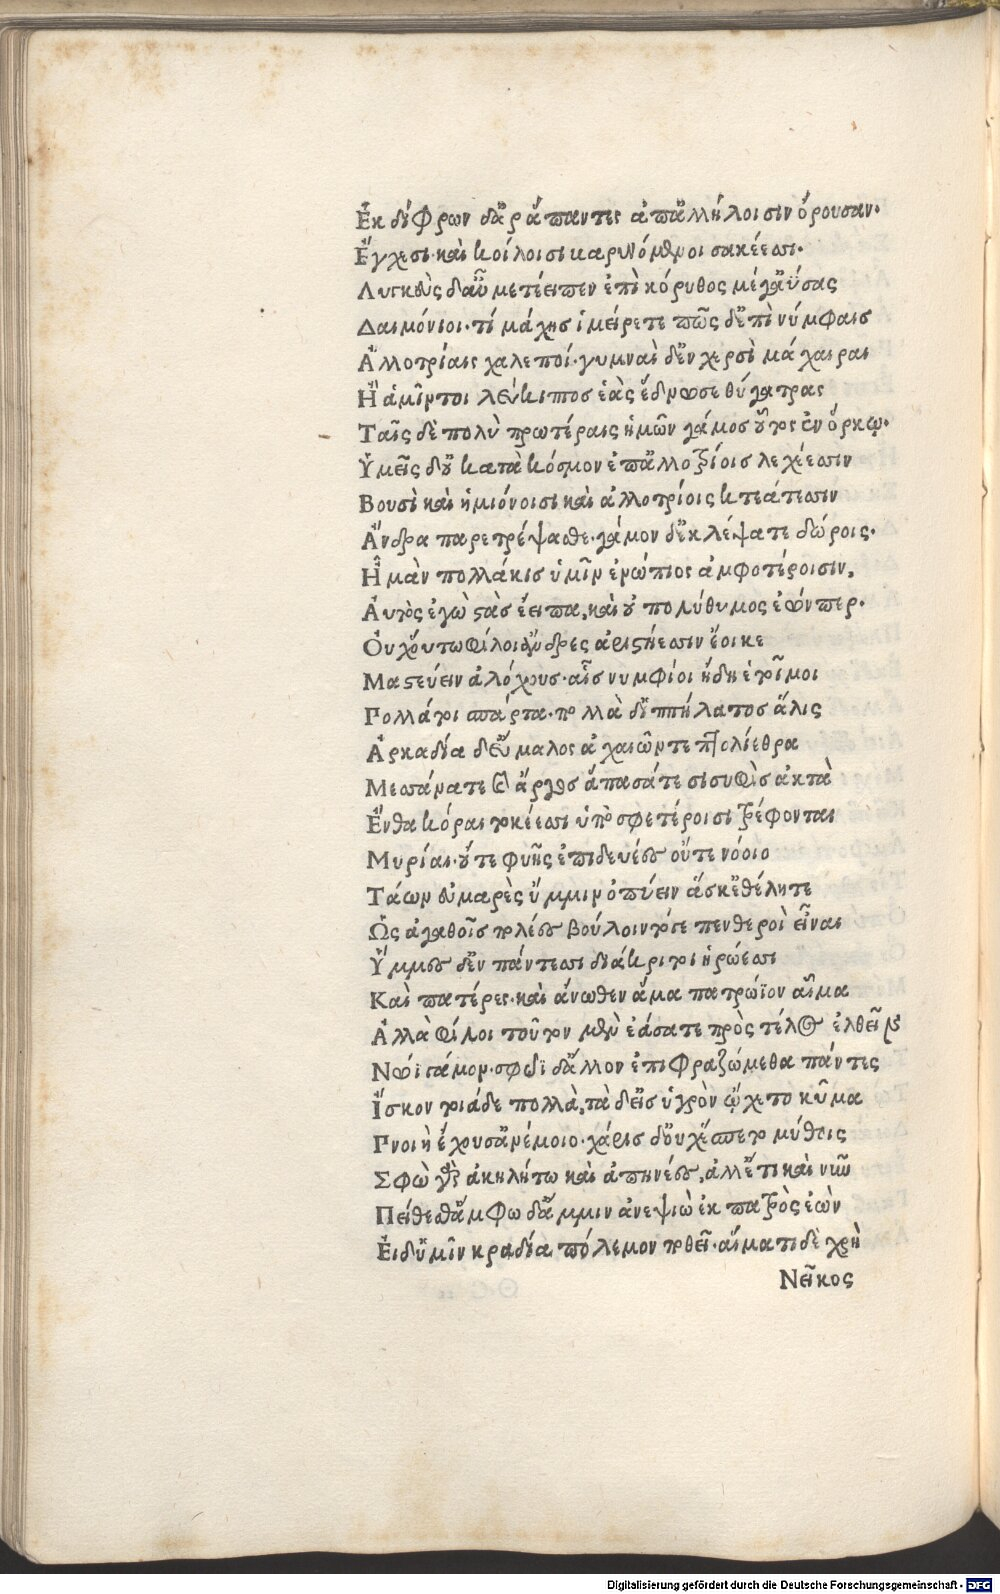 Ἐκ δίφρων δἂρ ἅπαντες ἀπἂλλήλοισιν ὄρουσαν·
Ἔγχεσι· καὶ κοίλοισι βαρυνόμενοι σακέεσσι·
Λυγκεὺς δαὖ μετέειπεν ἐπὶ κόρυθος μέγἂΰσας
Δαιμόνιοι· τί μάχης ἱμείρετε πῶς δἔπὶ νύμφαις
Ἀλλοτρίαις χαλεποί· γυμναὶ δἒν χερσὶ μάχαιραι
Ἧἁμῖν τοι λεύκιππος ἑὰς ἕδνωσε θύγατρας
Ταῖς δὲ πολὺ προτέραις ἡμῶν γάμος οὗτος ἐν ὅρκῳ·
Ὑμεῖς δοὐ κατὰ κόσμον ἐπἂλλοτρίοις λεχέεσσιν
Βουσὶ καὶ ἡμιόνοισι καὶ ἀλλοτρίοις κτεάτεσσιν
Ἄνδρα παρετρέψασθε· γάμον δἒκλέψατε δώροις·
Ἦ μὰν πολλάκις ὑμῖν ἐνώπιος ἀμφοτέροισιν,
Αὐτὸς ἐγὼ τὰς ἔειπα, καὶ οὐ πολύθυμος ἐών περ·
Οὐχ οὕτω φίλοι ἄνδρες ἀριστήεσσιν ἔοικε
Μαστεύειν ἀλόχους· αἷς νυμφίοι ἤδη ἑτοῖμοι
Πολλά τοι σπάρτα· πολλὰ δἵππήλατος ἅλις
Ἀρκαδία δεὔμαλος ἀχαιῶν τε πτολίεθρα
Μεσσάνα τε καὶ ἄργος ἅπασά τε σισυφὶς ἀκτὰ
Ἔνθα κόραι τοκέεσσι ὑπὸ σφετέροισι τρέφονται
Μυρίαι· οὔτε φυῆς ἐπιδευέες οὔτε νόοιο
Τάων εὐμαρὲς ὔμμιν ὀπύειν ἅς κἐθέλητε
Ὡς ἀγαθοῖς πολέες βούλοιντό γε πενθεροὶ εἶναι
Υ̓́μμες δἒν πάντεσσι διάκριτοι ἡρώεσσι
Καὶ πατέρες· καὶ ἄνωθεν ἅμα πατρώϊον αἷμα
Ἀλλὰ φίλοι τοῦτον μὲν ἐάσατε πρὸς τέλος ἐλθεῖν
Νῶϊ γάμον· σφῶϊ δἄλλον ἐπιφραζώμεθα πάντες
Ἴσκον τοιάδε πολλὰ, τὰ δεἰς ὑγρὸν ᾤχετο κῦμα
Πνοιὴ ἔχουσἂνέμοιο· χάρις δοὐχἕσπετο μύθοις
Σφὼ γὰρ ἀκηλήτω καὶ ἀπηνέες, ἀλλἔτι καὶ νῦν
Πείθεσθἄμφω δἄμμιν ἀνεψιὼ ἐκ πατρὸς ἐὼν
Εἰ δὔμῖν κραδία πόλεμον ποθεῖ· αἵματι δὲ χρὴ
Νεῖκος
Digitalisierung gefördert durch die Deutsche Forschungsgemeinschaft - DFG